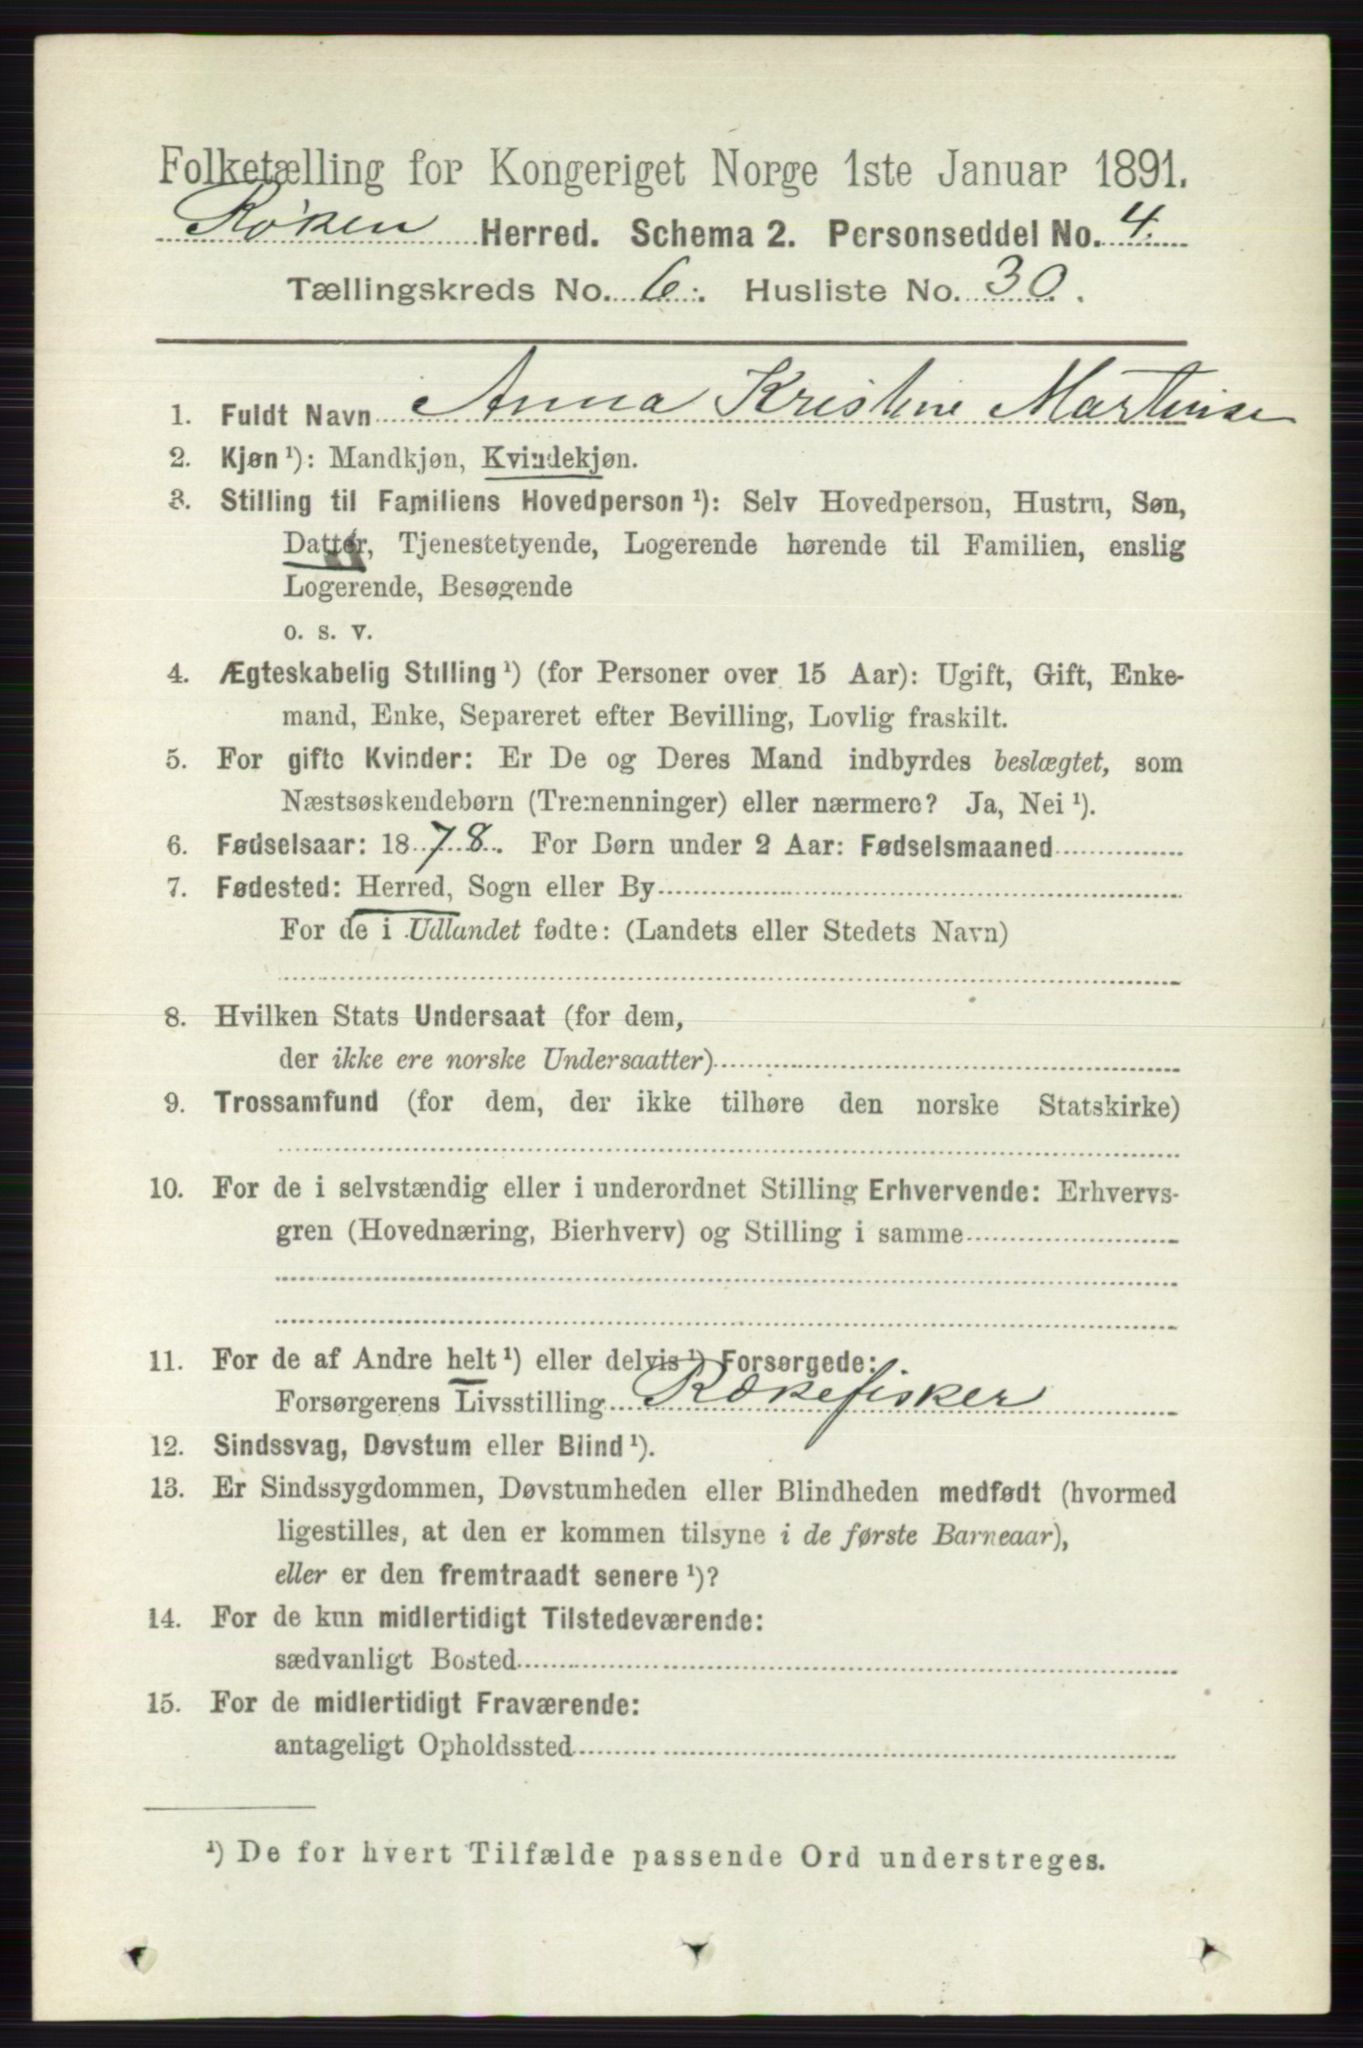 Folketælling for Kongeriget Norge 1ste Januar 1891.
Røken Herred. Schema 2. Personseddel No. 4.
Tællingskreds No. 6. Husliste No. 30.
1. Fuldt Navn Anna Kristine Martinse
2. Kjøn ¹): Mandkjøn, Kvindekjøn.
3. Stilling til Familiens Hovedperson ¹): Selv Hovedperson, Hustru, Søn,
Datter, Tjenestetyende, Logerende hørende til Familien, enslig
Logerende, Besøgende
o. s. v.
4. Ægteskabelig Stilling ¹) (for Personer over 15 Aar): Ugift, Gift, Enke-
mand, Enke, Separeret efter Bevilling, Lovlig fraskilt.
5. For gifte Kvinder: Er De og Deres Mand indbyrdes beslægtet, som
Næstsøskendebørn (Tremenninger) eller nærmere? Ja, Nei ¹).
6. Fødselsaar: 1878. For Børn under 2 Aar: Fødselsmaaned
7. Fødested: Herred, Sogn eller By
For de i Udlandet fødte: (Landets eller Stedets Navn)
8. Hvilken Stats Undersaat (for dem,
der ikke ere norske Undersaatter)
9. Trossamfund (for dem, der ikke tilhøre den norske Statskirke)
10. For de i selvstændig eller i underordnet Stilling Erhvervende: Erhvervs-
gren (Hovednæring, Bierhverv) og Stilling i samme
11. For de af Andre helt ¹) eller delvis ¹) Forsørgede:
Forsørgerens Livsstilling Rækefisker
12. Sindssvag, Døvstum eller Blind ¹).
13. Er Sindssygdommen, Døvstumheden eller Blindheden medfødt (hvormed
ligestilles, at den er kommen tilsyne i de første Barneaar),
eller er den fremtraadt senere ¹)?
14. For de kun midlertidigt Tilstedeværende:
sædvanligt Bosted
15. For de midlertidigt Fraværende:
antageligt Opholdssted
¹) De for hvert Tilfælde passende Ord understreges.